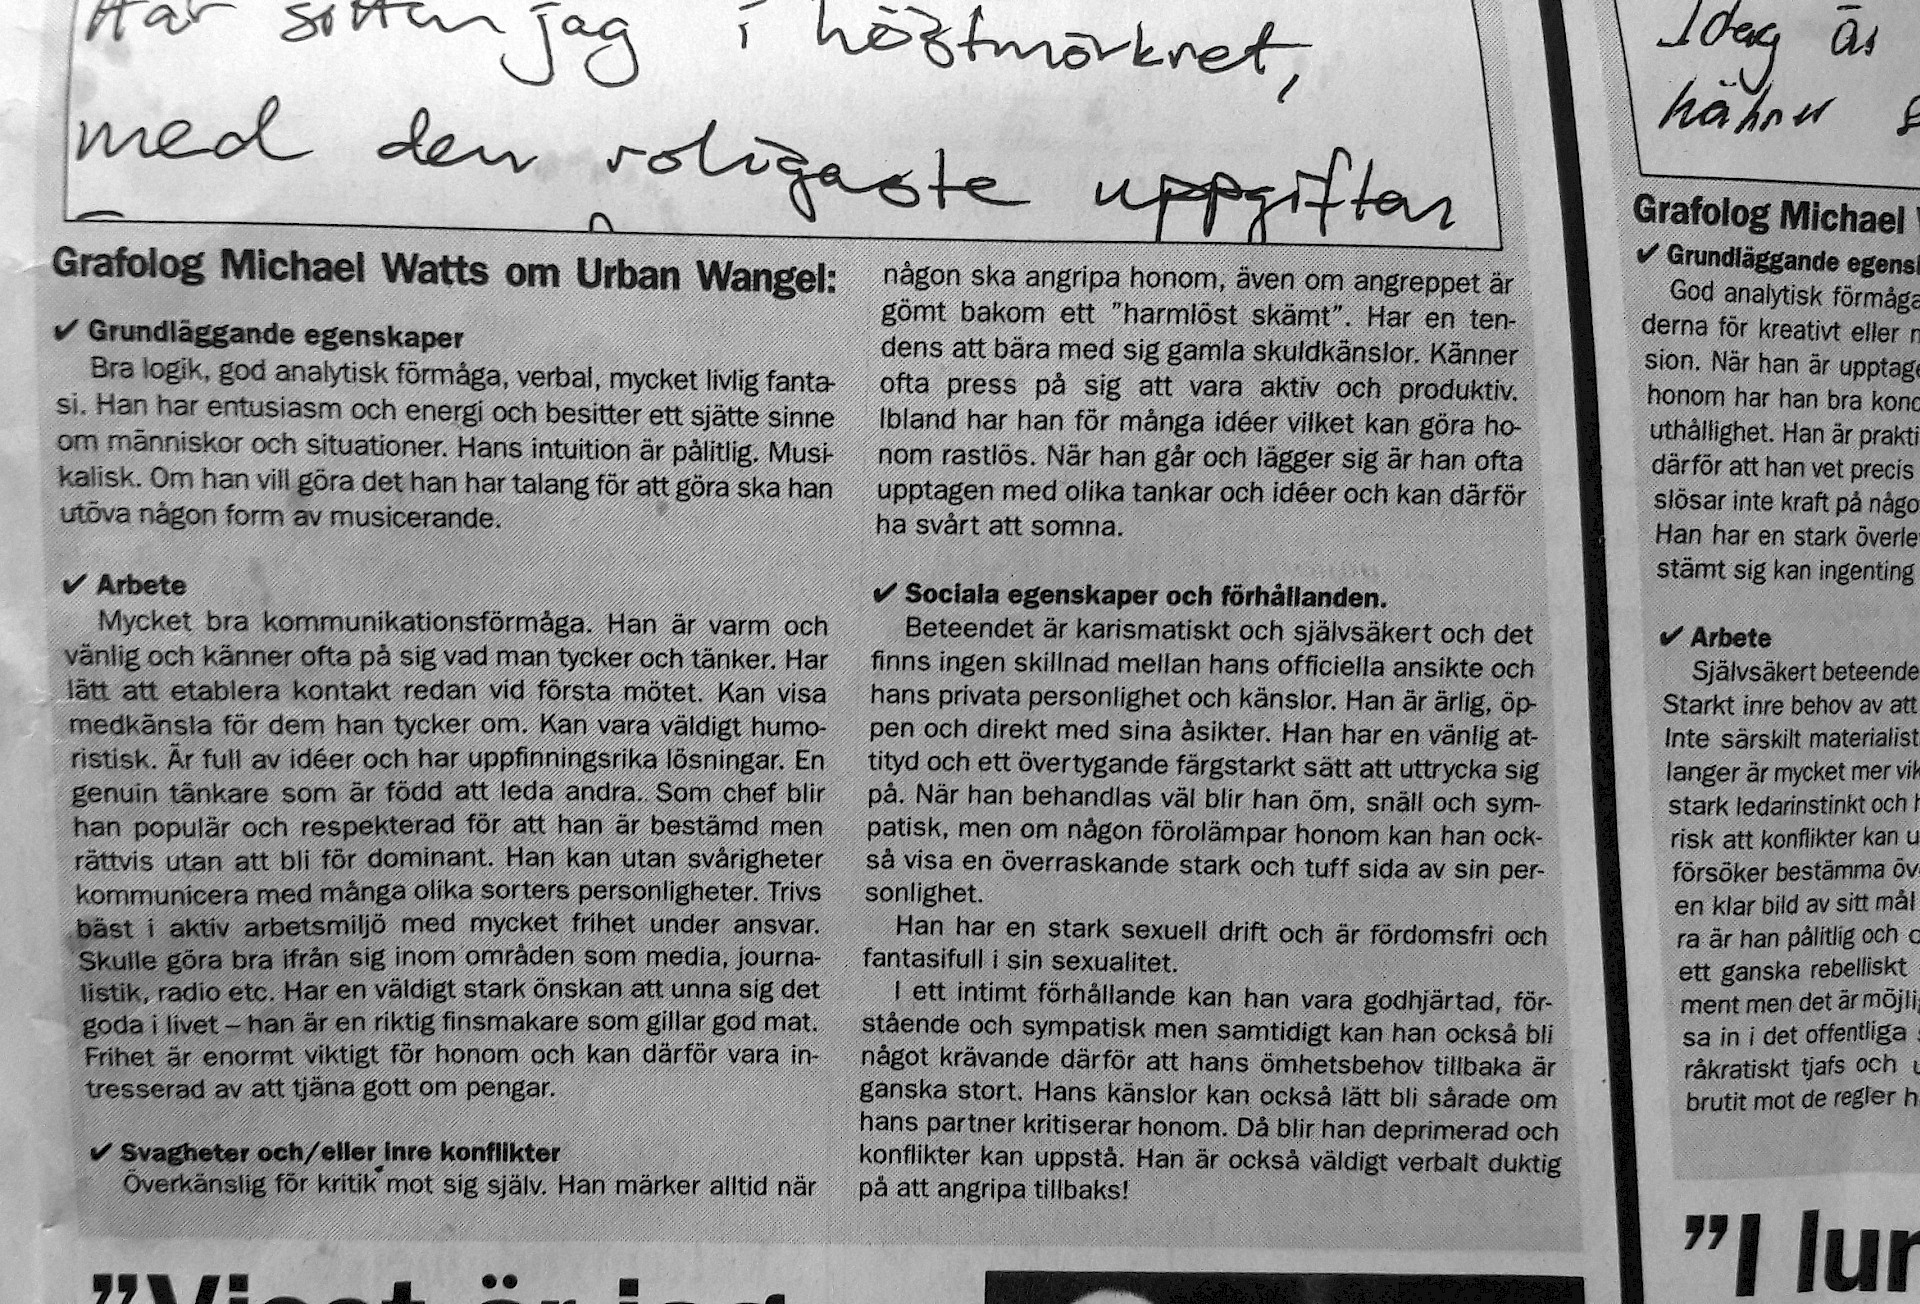 Här sitter jag i höstmörkret,
med den roligaste uppgiften
Grafolog Michael Watts om Urban Wangel:
✔ Grundläggande egenskaper
Bra logik, god analytisk förmåga, verbal, mycket livlig fanta-
si. Han har entusiasm och energi och besitter ett sjätte sinne
om människor och situationer. Hans intuition är pålitlig. Musi-
kalisk. Om han vill göra det han har talang för att göra ska han
utöva någon form av musicerande.
✔ Arbete
Mycket bra kommunikationsförmåga. Han är varm och
vänlig och känner ofta på sig vad man tycker och tänker. Har
lätt att etablera kontakt redan vid första mötet. Kan visa
medkänsla för dem han tycker om. Kan vara väldigt humo-
ristisk. Är full av idéer och har uppfinningsrika lösningar. En
genuin tänkare som är född att leda andra. Som chef blir
han populär och respekterad för att han är bestämd men
rättvis utan att bli för dominant. Han kan utan svårigheter
kommunicera med många olika sorters personligheter. Trivs
bäst i aktiv arbetsmiljö med mycket frihet under ansvar.
Skulle göra bra ifrån sig inom områden som media, journa-
listik, radio etc. Har en väldigt stark önskan att unna sig det
goda i livet – han är en riktig finsmakare som gillar god mat.
Frihet är enormt viktigt för honom och kan därför vara in-
tresserad av att tjäna gott om pengar.
✔ Svagheter och/eller inre konflikter
Överkänslig för kritik mot sig själv. Han märker alltid när
någon ska angripa honom, även om angreppet är
gömt bakom ett ”harmlöst skämt”. Har en ten-
dens att bära med sig gamla skuldkänslor. Känner
ofta press på sig att vara aktiv och produktiv.
Ibland har han för många idéer vilket kan göra ho-
nom rastlös. När han går och lägger sig är han ofta
upptagen med olika tankar och idéer och kan därför
ha svårt att somna.
✔ Sociala egenskaper och förhållanden.
Beteendet är karismatiskt och självsäkert och det
finns ingen skillnad mellan hans officiella ansikte och
hans privata personlighet och känslor. Han är ärlig, öp-
pen och direkt med sina åsikter. Han har en vänlig at-
tityd och ett övertygande färgstarkt sätt att uttrycka sig
på. När han behandlas väl blir han öm, snäll och sym-
patisk, men om någon förolämpar honom kan han ock-
så visa en överraskande stark och tuff sida av sin per-
sonlighet.
Han har en stark sexuell drift och är fördomsfri och
fantasifull i sin sexualitet.
I ett intimt förhållande kan han vara godhjärtad, för-
stående och sympatisk men samtidigt kan han också bli
något krävande därför att hans ömhetsbehov tillbaka är
ganska stort. Hans känslor kan också lätt bli sårade om
hans partner kritiserar honom. Då blir han deprimerad och
konflikter kan uppstå. Han är också väldigt verbalt duktig
på att angripa tillbaks!
”Visst är jag
Idag är
Grafolog Michael
✔ Grundläggande egensk
God analytisk förmåga
derna för kreativt eller
sion. När han är upptage
honom har han bra konc
uthållighet. Han är prakti
därför att han vet precis
slösar inte kraft på någo
Han har en stark överle
stämt sig kan ingenting
✔ Arbete
Självsäkert beteende
Starkt inre behov av att
Inte särskilt materialist
langer är mycket mer vik
stark ledarinstinkt och
risk att konflikter kan
försöker bestämma öv
en klar bild av sitt mål
ra är han pålitlig och
ett ganska rebelliskt
ment men det är möjlig
sa in i det offentliga
råkratiskt tjafs och
brutit mot de regler
”I lun